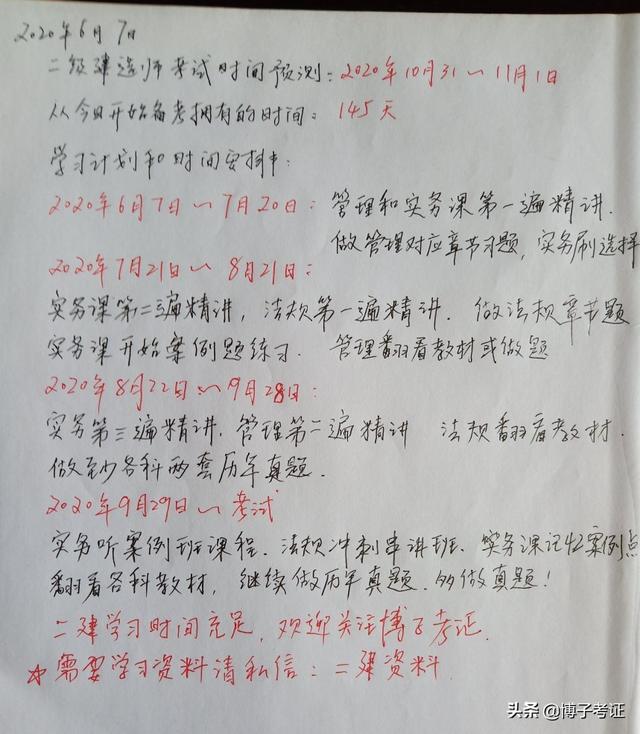 2020年6月7日
二级建造师考试时间预测:2020年10月31~11月1日
从今日开始备考拥有的时间:145天
学习计划和时间安排:
2020年6月7日~7月20日:管理和实务课第一遍精讲.
做管理对应章节习题,实务刷选择
2020年7月21日~8月21日:
实务课第二遍精讲,法规第一遍精讲.做法规章节题
实务课开始案例题练习.管理翻看教材或做题
2020年8月22日~9月28日:
实务第三遍精讲.管理第二遍精讲 法规翻看教材.
做至少各科两套历年真题.
2020年9月29日~考试
实务听案例班课程.法规冲刺串讲班.实务课记忆案例点
翻看各科教材,继续做历年真题.多做真题!
二建学习时间充足,欢迎关注博子考证.
☆需要学习资料请私信:二建资料.
头条@博子考证